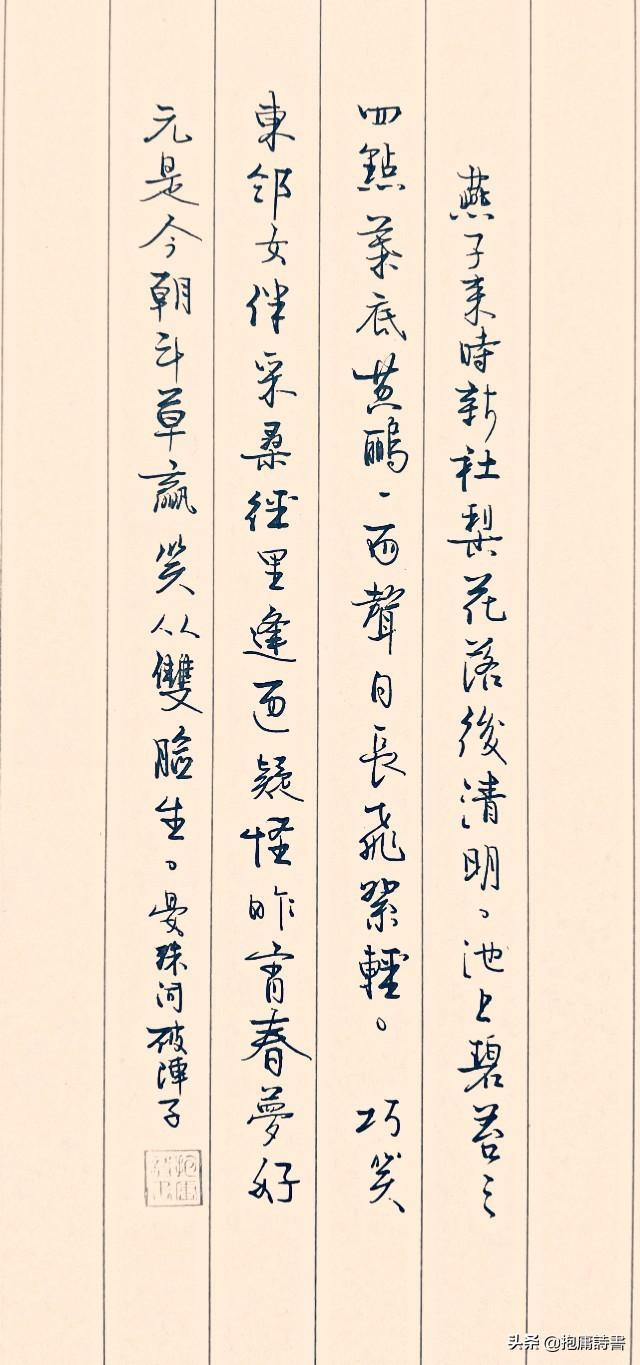 燕子来時新社梨花落後清明。池上碧苔三
四點葉底黄鸝一兩聲日長飛絮輕。 巧笑
東邻女伴采桑徑里逢迎疑怪昨宵春夢好
元是今朝斗草贏笑从雙臉生。晏殊词破陣子
头条 @抱庸詩書